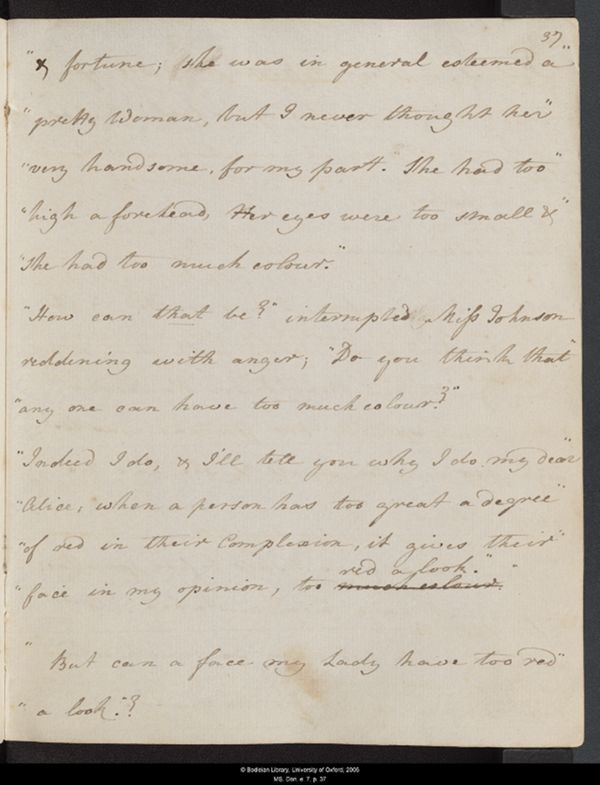 37
"& fortune; she was in general esteemed a"
"pretty Woman, but I never thought her"
"very handsome, for my part. She had too"
"high a forehead, Her eyes were too small &"
"She had too much colour."
"How can that be?" interrupted Miss Johnson
reddening with anger; "Do you think that"
"any one can have too much colour?"
"Indeed I do, & I'll tell you why I do my dear"
"Alice; when a person has too great a degree"
"of red in their Complexion, it gives their"
red a look."
"face in my opinion, too much colour."
"But can a face my Lady have too red"
"a look"?
© Bodleian Library, University of Oxford, 2006
MS. Don. e. 7, p. 37